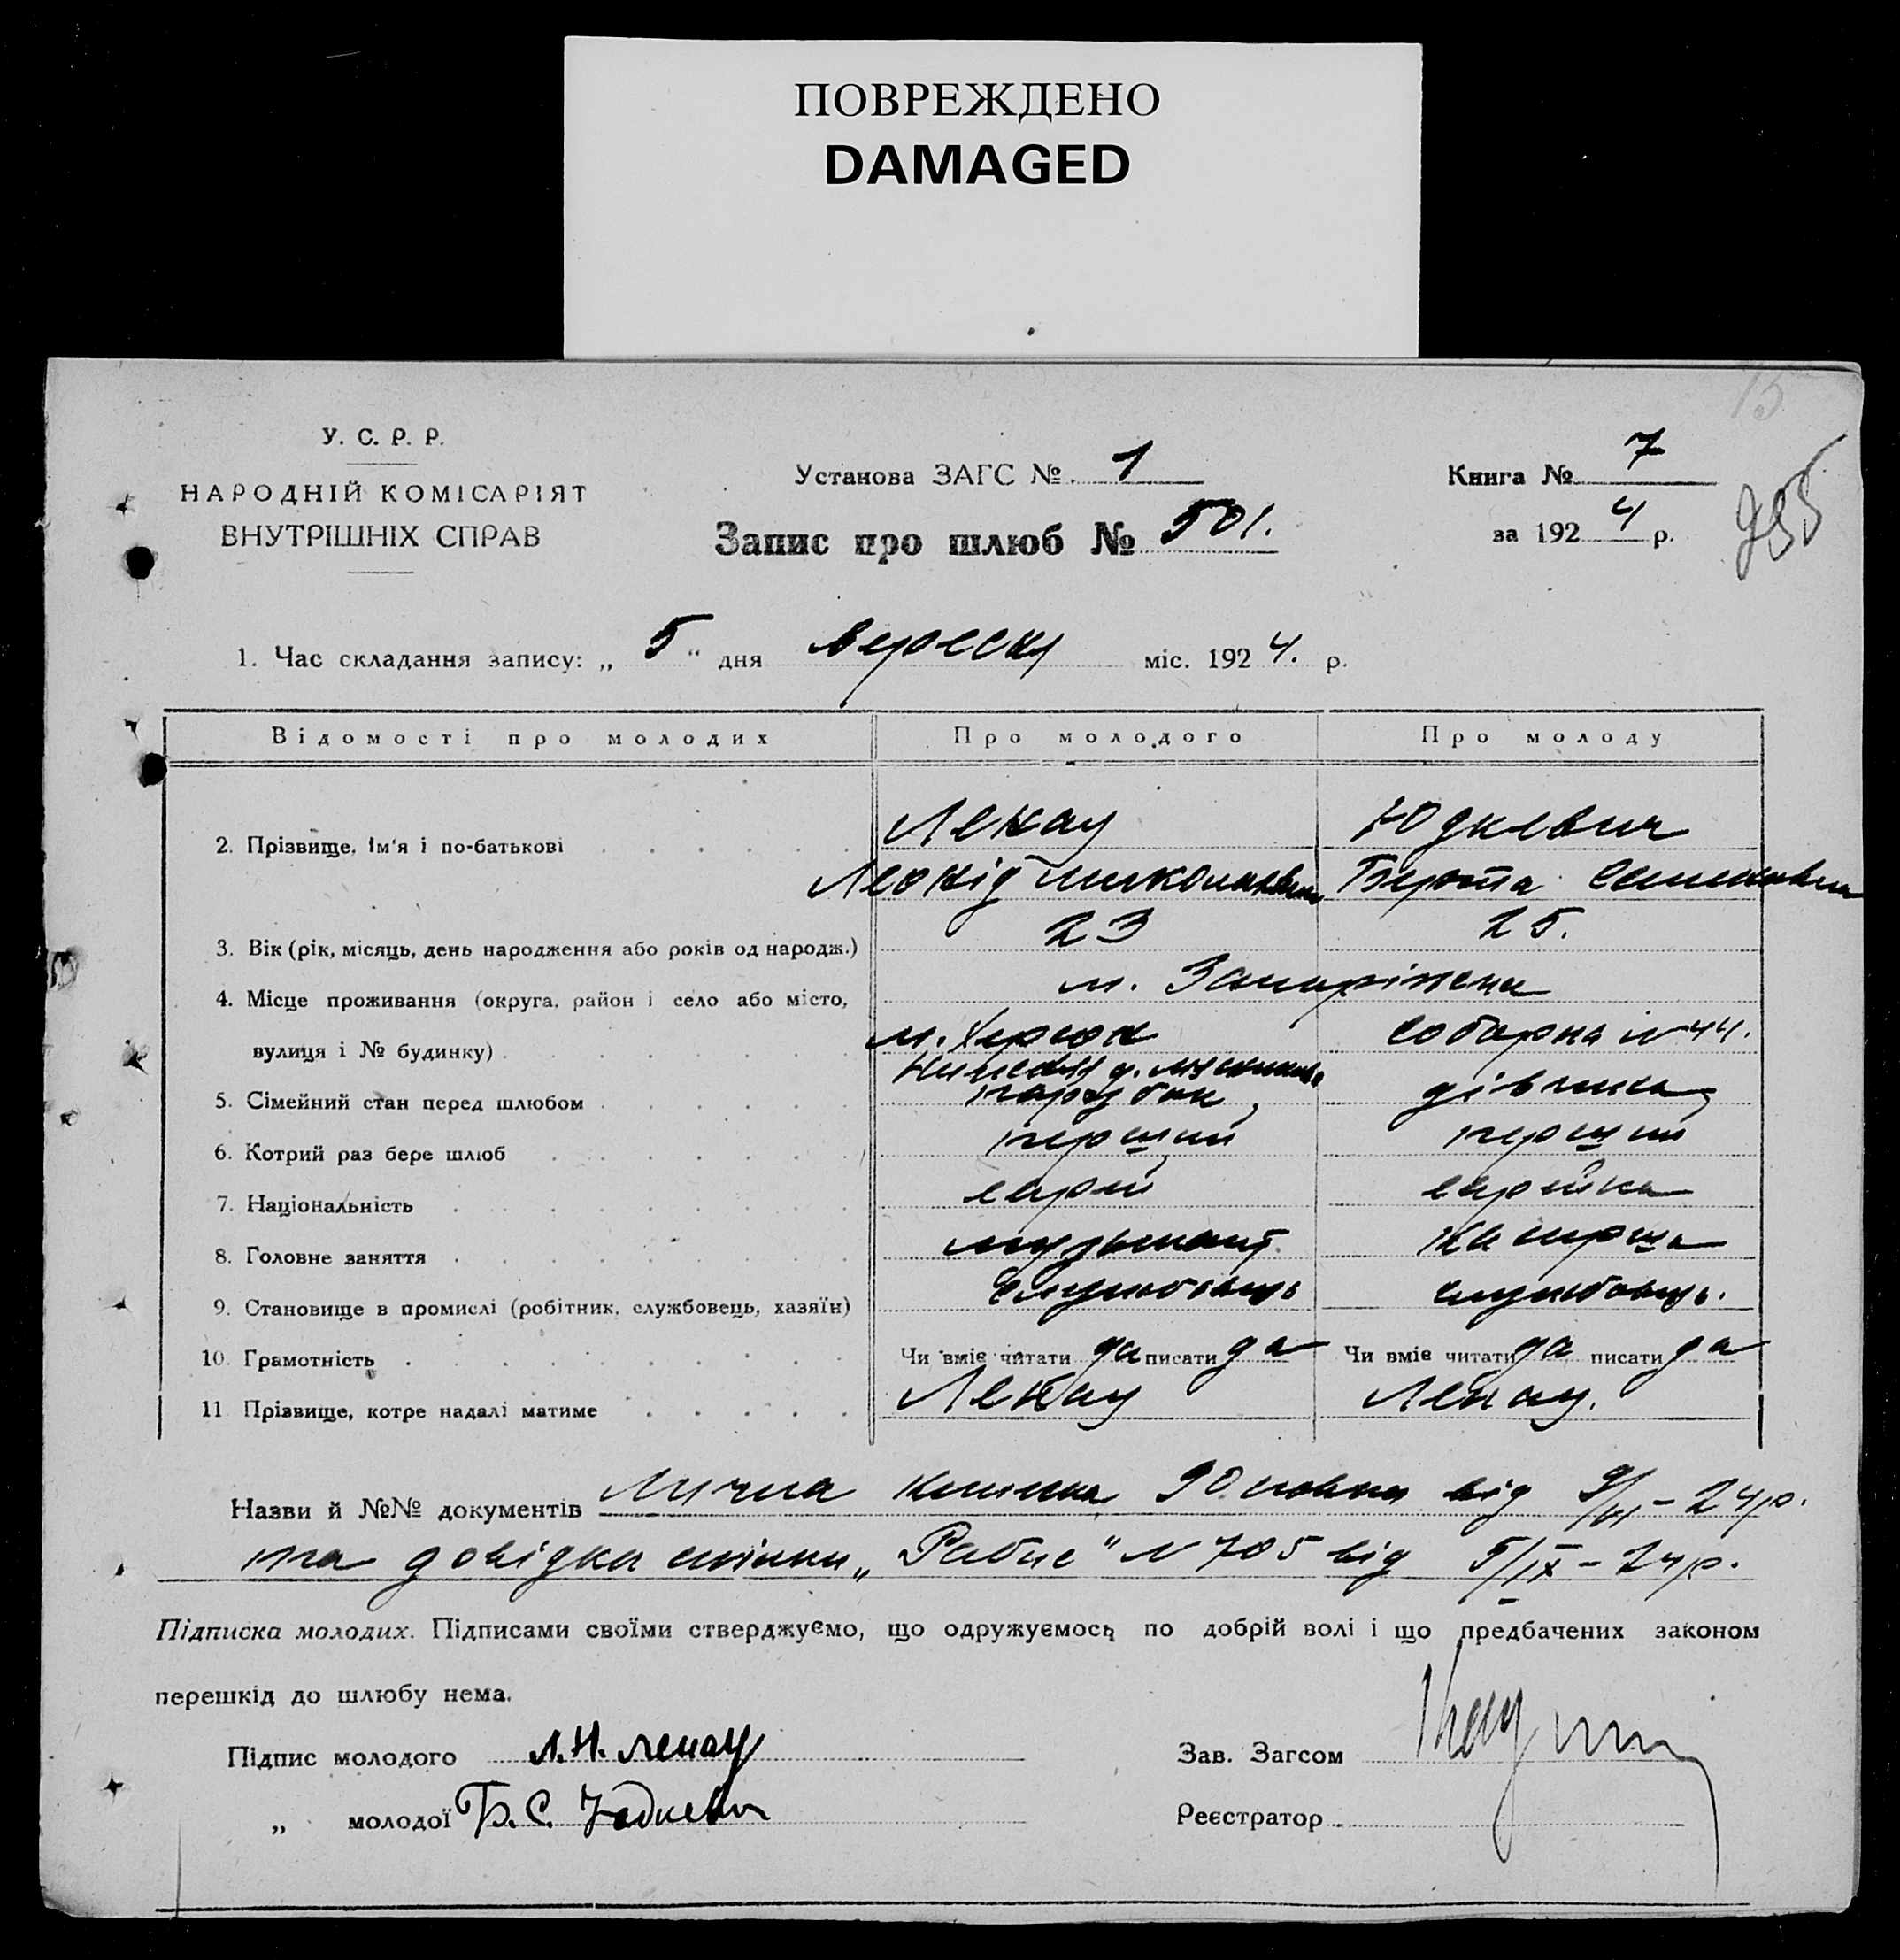 ПОВРЕЖДЕНО
DAMAGED
15
У. С. Р. Р.
НАРОДНІЙ КОМІСАРІЯТ
ВНУТРІШНІХ СПРАВ
Установа ЗАГС № 1
Запис про шлюб № 501.
Книга № 7
за 1924 р.
1. Час складання запису: „ 5 " дня вересня міс. 1924. р.
Відомості про молодих
Про молодого
Про молоду
2. Прізвище, Ім'я і по-батькові
Ленау
Юдкевич
Леонід Миколаєвич
Берта
3. Вік (рік, місяць, день народження або років од народж.)
23
25.
4. Місце проживання (округа, район і село або місто,
м. Запоріжжя
вулиця і № будинку)
м. Херсон
Соборна № 44.
5. Сімейний стан перед шлюбом
парубок,
дівчина,
6. Котрий раз бере шлюб
перший
перший
7. Національність
еврей
еврейка
8. Головне заняття
музыкант
касирша
9. Становище в промислі (робітник, службовець, хазяїн)
службовець
службовець.
10. Грамотність
Чи вміє читати да писати да
Чи вміє читати да писати да
11. Прізвище, котре надалі матиме
Ленау
Ленау.
Назви й №№ документів Лична книжка від 24р.
та довідка спілки „Рабис" № 705 від 5/IX - 24р.
Підписка молодих. Підписами своїми стверджуємо, що одружуємось по добрій волі і що предбачених законом
перешкід до шлюбу нема.
Підпис молодого Л.Н. Ленау
Зав. Загсом
„ молодої Б.С. Юдкевич
Реєстратор